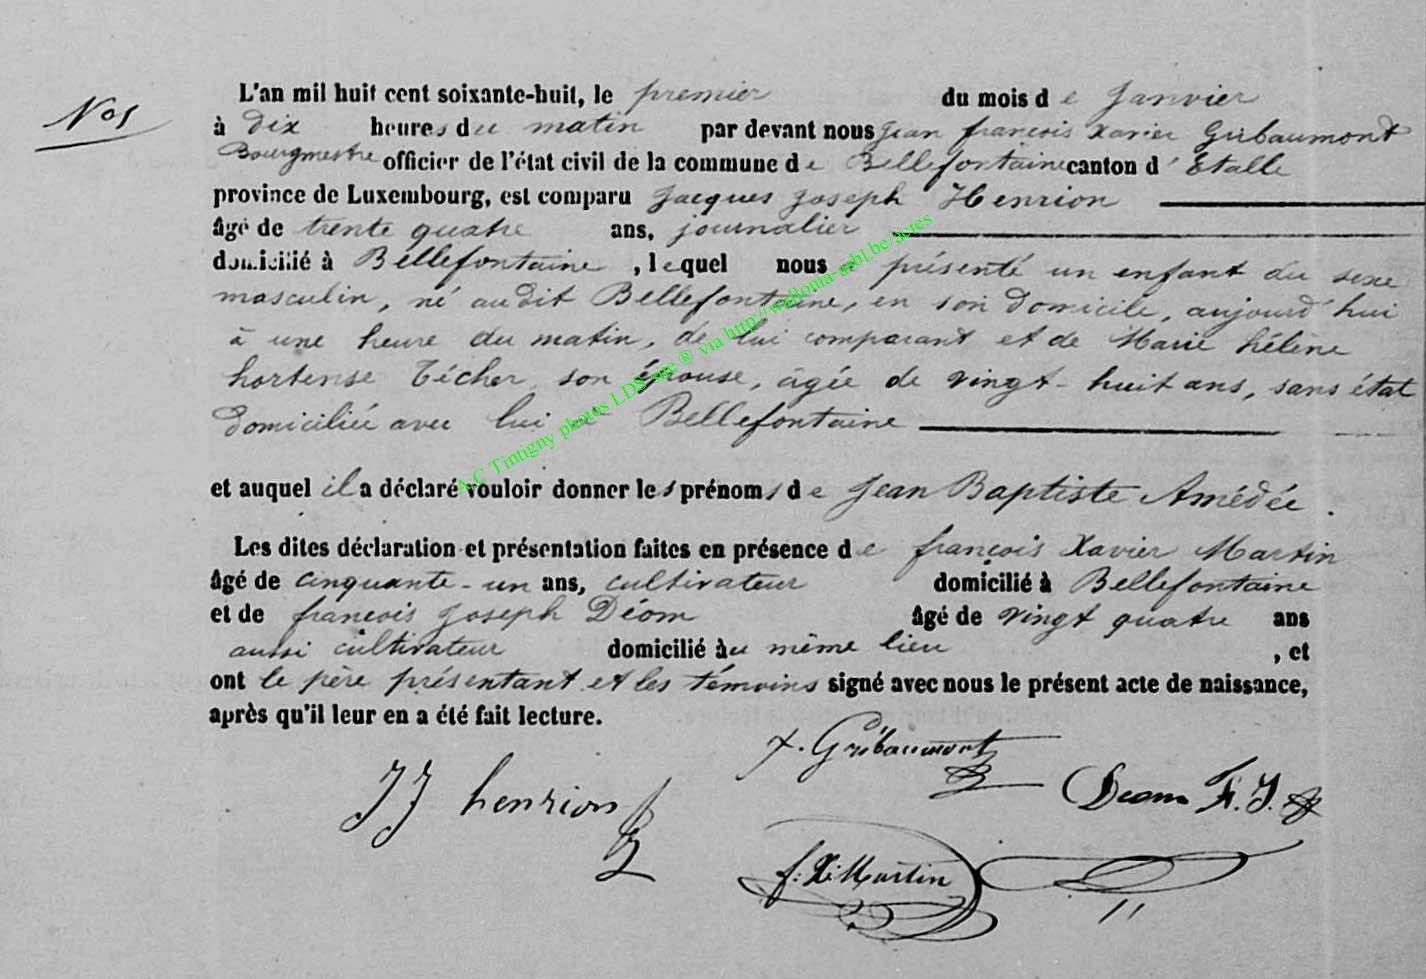 No 1
L'an mil huit cent soixante-huit, le premier du mois de Janvier
à dix heures du matin par devant nous Jean françois Xavier Gribaumont
Bourgmestre officier de l'état civil de la commune de Bellefontaine canton d'Etalle
province de Luxembourg, est comparu Jacques Joseph Henrion
âgé de trente quatre ans, journalier
domicilié à Bellefontaine, lequel nous a présenté un enfant du sexe
masculin, né audit Bellefontaine, en son domicile, aujourd'hui
à une heure du matin, de lui comparant et de Marie hélène
hortense Técher, son épouse, âgée de vingt-huit ans, sans état
domiciliée avec lui à Bellefontaine
et auquel il a déclaré vouloir donner les prénoms de Jean Baptiste Amédée.
Les dites déclaration et présentation faites en présence de françois Xavier Martin
âgé de cinquante-un ans, cultivateur domicilié à Bellefontaine
et de francois Joseph Déom âgé de vingt quatre ans
aussi cultivateur domicilié au même lieu, et
ont le père présentant et les témoins signé avec nous le présent acte de naissance,
après qu'il leur en a été fait lecture.
x. Gribaumont
JJ henrion
Deom F.J.
f. X. Martin
A.C Tintigny photos LDS site ® via http://wallonia-asbl.be/actes